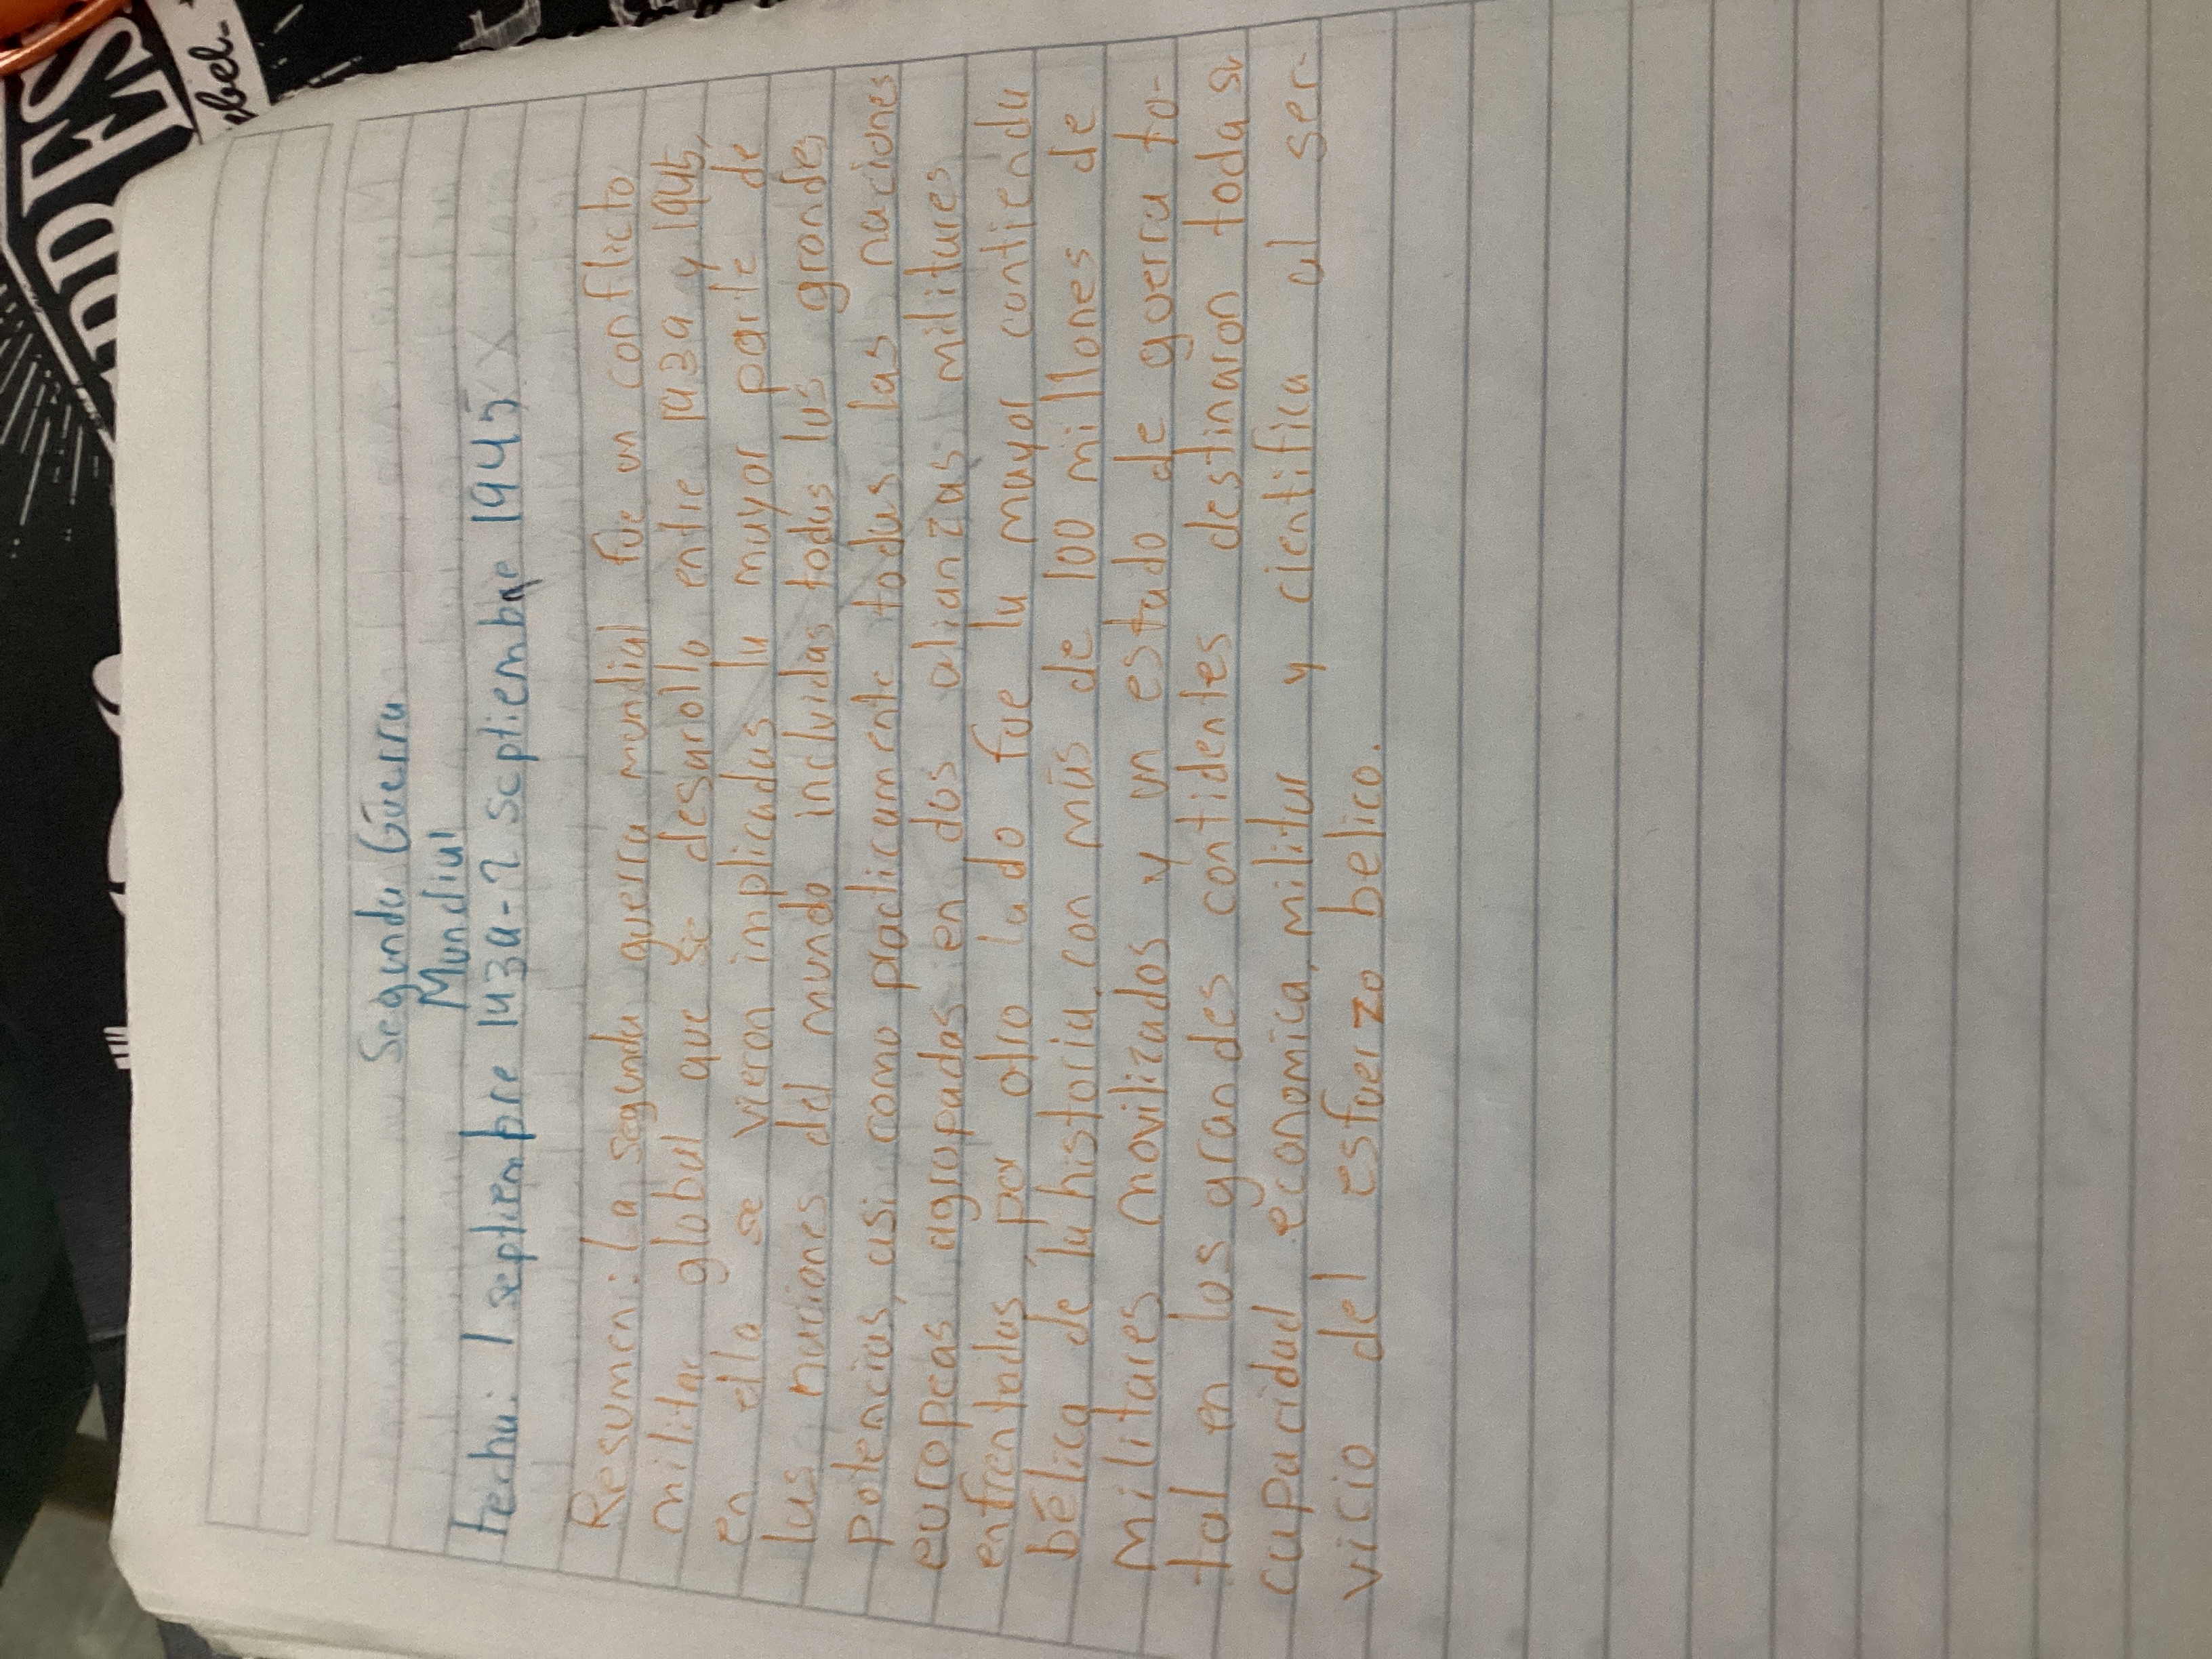 Segunda Guerra
Mundial
fecha: 1 septiembre 1939-2 septiembre 1945
Resumen: La segunda guerra mundial fue un conflicto
militar global que se desarrollo entre 1939 y 1945,
en ella se vieron implicadas la mayor parte de
las naciones del mundo incluidas todas las grandes
potencias, asi como practicamente todas las naciones
europeas agrupadas en dos alianzas militares
enfrentadas, por otro lado fue la mayor contienda
bélica de la historia, con más de 100 millones de
militares movilizados y un estado de guerra to-
tal en los grandes contidentes destinaron toda su
capacidad economica, militar y cientifica al ser-
vicio del esfuerzo belico.
bel